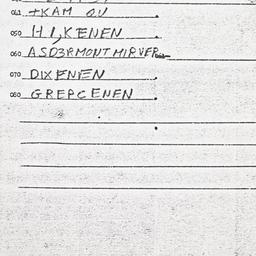 041 +KAM OU
050 HI,KENEN
060 ASD3RMONTMIRVER
070 DIXENEN
080 GREPCENEN